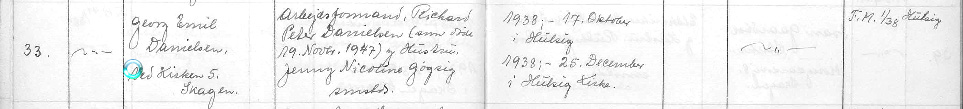 33. 
Georg Emil
Danielsen.
Ved Kirken 5.
Skagen.
Arbejdsformand, Richard
Peter Danielsen (som døde
19. Nov. 1947) og Hustru
Jenny Nicoline Gögsig
smstds.
1938; - 17. Oktober
i Hulsig
1938; - 25. December
i Hulsig Kirke.
F. M. 1/38 Hulsig